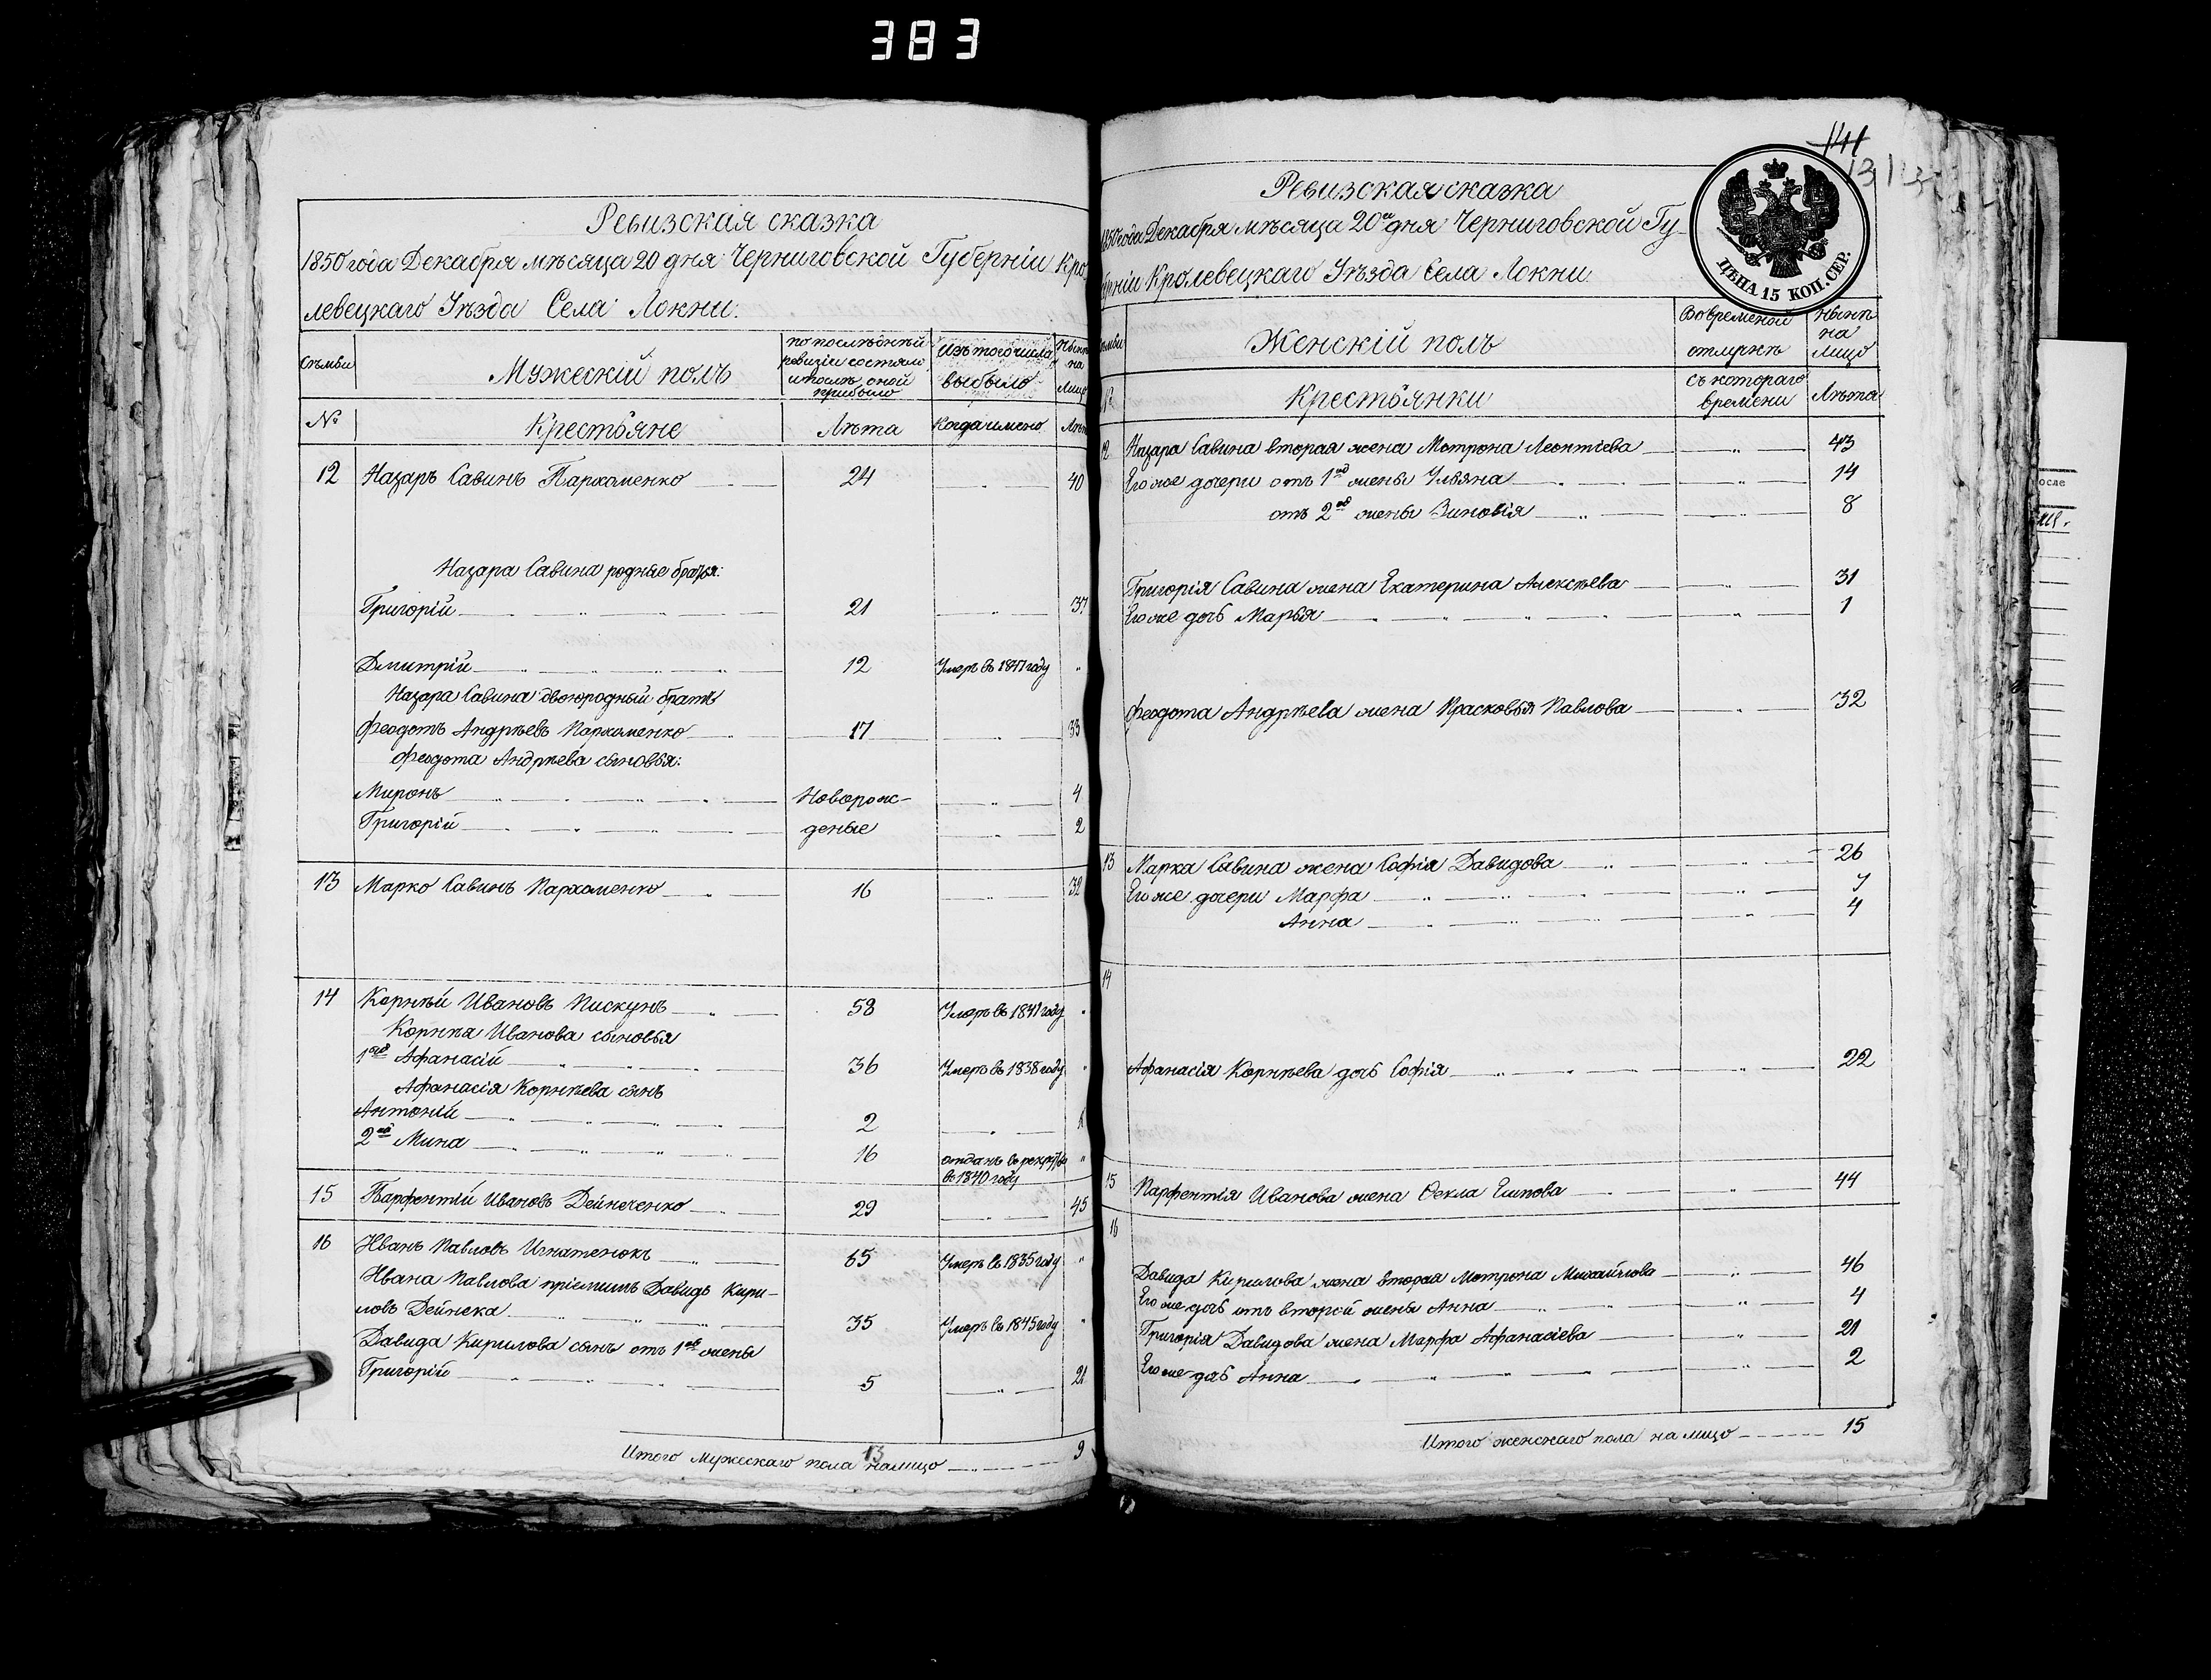 383
Ревизская сказка
1850 года Декабря мѣсяца 20 дня Черниговской Губерніи Кро
левецкаго Уѣзда Села Локни.
Съмьи
Мужескій полъ
по послѣдней
ревизіи состояло
и послѣ оной
прибыло
Изъ того числа
выбыло
Нынѣ
на
Лицо
№
Крестьяне
Лѣта
Когда имено
Лѣта
12 Назаръ Савинъ Пархоменко 24 " 40
Назара Савина родные братья:
Григорій 21 " 37
Дмитрій 12 Умеръ въ 1847 году "
Назара Савина двоюродный братъ
Феодотъ Андрѣевъ Пархоменко 17 " 33
Феодота Андрѣева сыновья:
Миронъ Новорож- " 4
Григорій деные " 2
13 Марко Савинъ Пархоменко 16 " 32
14 Корнѣй Ивановъ Пискунъ 58 Умеръ въ 1841 году "
Корнѣя Иванова сыновья
1ой Афанасій 36 Умеръ въ 1838 году "
Афанасія Корнѣева сынъ
Антоній 2 "
2ой Мина 16 отданъ въ рекруты "
въ 1840 году
15 Парфентій Ивановъ Дейнеченко 29 " 45
16 Иванъ Павловъ Игнатенокъ 65 Умеръ въ 1835 году "
Ивана Павлова пріемышъ Давидъ Кири-
ловъ Дейнека 35 Умеръ въ 1845 году "
Давида Кирилова сынъ отъ 1ой жены
Григорій 5 " 21
Итого Мужескаго пола налицо 9
13
141
Ревизская сказка
1850 года Декабря мѣсяца 20го дня Черниговской Гу-
берніи Кролевецкаго Уѣзда Села Локни.
ЦѢНА 15 КОП. СЕР.
Семьи
Женскій полъ
Во временой
отлучкѣ
Нынѣ
на
Лицо
№
Крестьянки
съ котораго
времени
Лѣта
12 Назара Савина вторая жена Мотрона Леонтіева " 43
Его же дочери отъ 1ой жены Ульяна " 14
отъ 2ой жены Зиновія " 8
Григорія Савина жена Екатерина Алексѣева " 31
Его же дочь Марья " 1
Феодота Андрѣева жена Прасковья Павлова " 32
13 Марка Савина жена Софія Давидова " 26
Его же дочери Марфа " 7
Анна " 4
14
Афанасія Корнѣева дочь Софія 22
15 Парфентія Иванова жена Ѳекла Ешпова " 44
16
Давида Кирилова жена вторая Мотрона Михайлова " 46
Его же дочь отъ второй жены Анна " 4
Григорія Давидова жена Марфа Афанасіева " 21
Его же дочь Анна " 2
Итого женскаго пола на лицо 15
осле